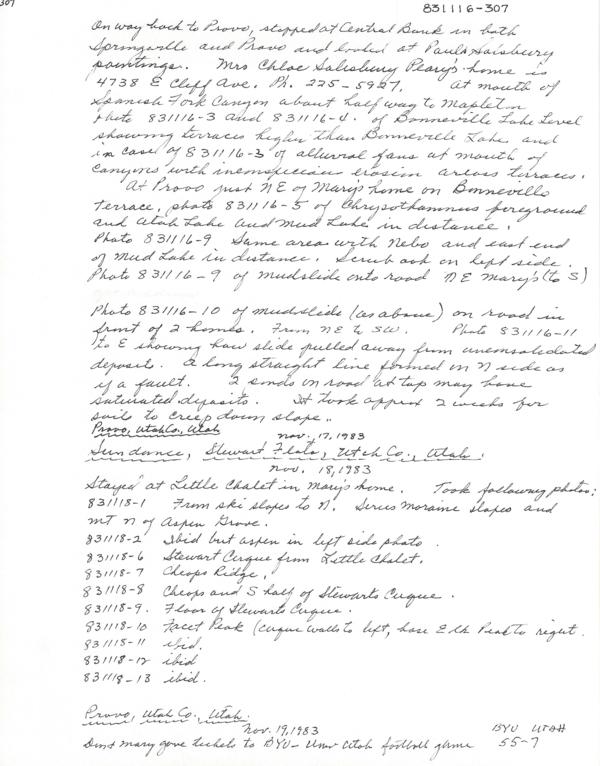 307
831116-307
On way back to Provo, stopped at Central Bank in both
Springville and Provo and looked at Paul Salsbury
paintings. Mrs Chloe Salisbury Peary's home is
4738 E Cliff Ave. Ph. 225-5927. At mouth of
Spanish Fork Canyon about half way to Mapleton
photo 831116-3 and 831116-4. of Bonneville Lake Level
showing terraces higher than Bonneville Lake and
in case of 831116-3 of alluvial fans at mouth of
canyons with inconspicious erosion across terraces.
At Provo just NE of Mary's home on Bonneville
Terrace, photo 831116-5 of Chrysothamnus foreground
and Utah Lake and Mud Lake in distance.
Photo 831116-9 Same area with Nebo and east end
of Mud Lake in distance. Scrub oak on left side.
Photo 831116-9 of mudslide onto road NE Mary's (to S)
Photo 831116-10 of mudslide (as above) on road in
front of 2 homes. From NE to SW. Photo 831116-11
to E showing how slide pulled away from unconsolidated
deposits. A long straight line formed on N side as
if a fault. 2 on road at top may have
saturated deposits. It took approx 2 weeks for
soils to creep down slope..
Provo, Utah Co., Utah
Nov. 17, 1983
Sundance, Stewart Flats, Utah Co., Utah.
Nov. 18, 1983
Stayed at Little Chalet in Mary's home. Took following photos:
831118-1 From ski slopes to N. moraine slopes and
mt N of Aspen Grove.
831118-2 Ibid but aspen in left side photo.
831118-6 Stewart Cirque from Little Chalet.
831118-7 Cheops Ridge.
831118-8 Cheops and S half of Stewarts Cirque.
831118-9. Floor of Stewarts Cirque.
831118-10 Facet Peak (cirque walls to left, base Elk Peak to right.
831118-11 ibid.
831118-12 ibid
831118-13 ibid.
Provo, Utah Co., Utah.
Nov. 19, 1983
BYU UTAH
Don & Mary gave tickets to BYU - Univ Utah football game 55-7